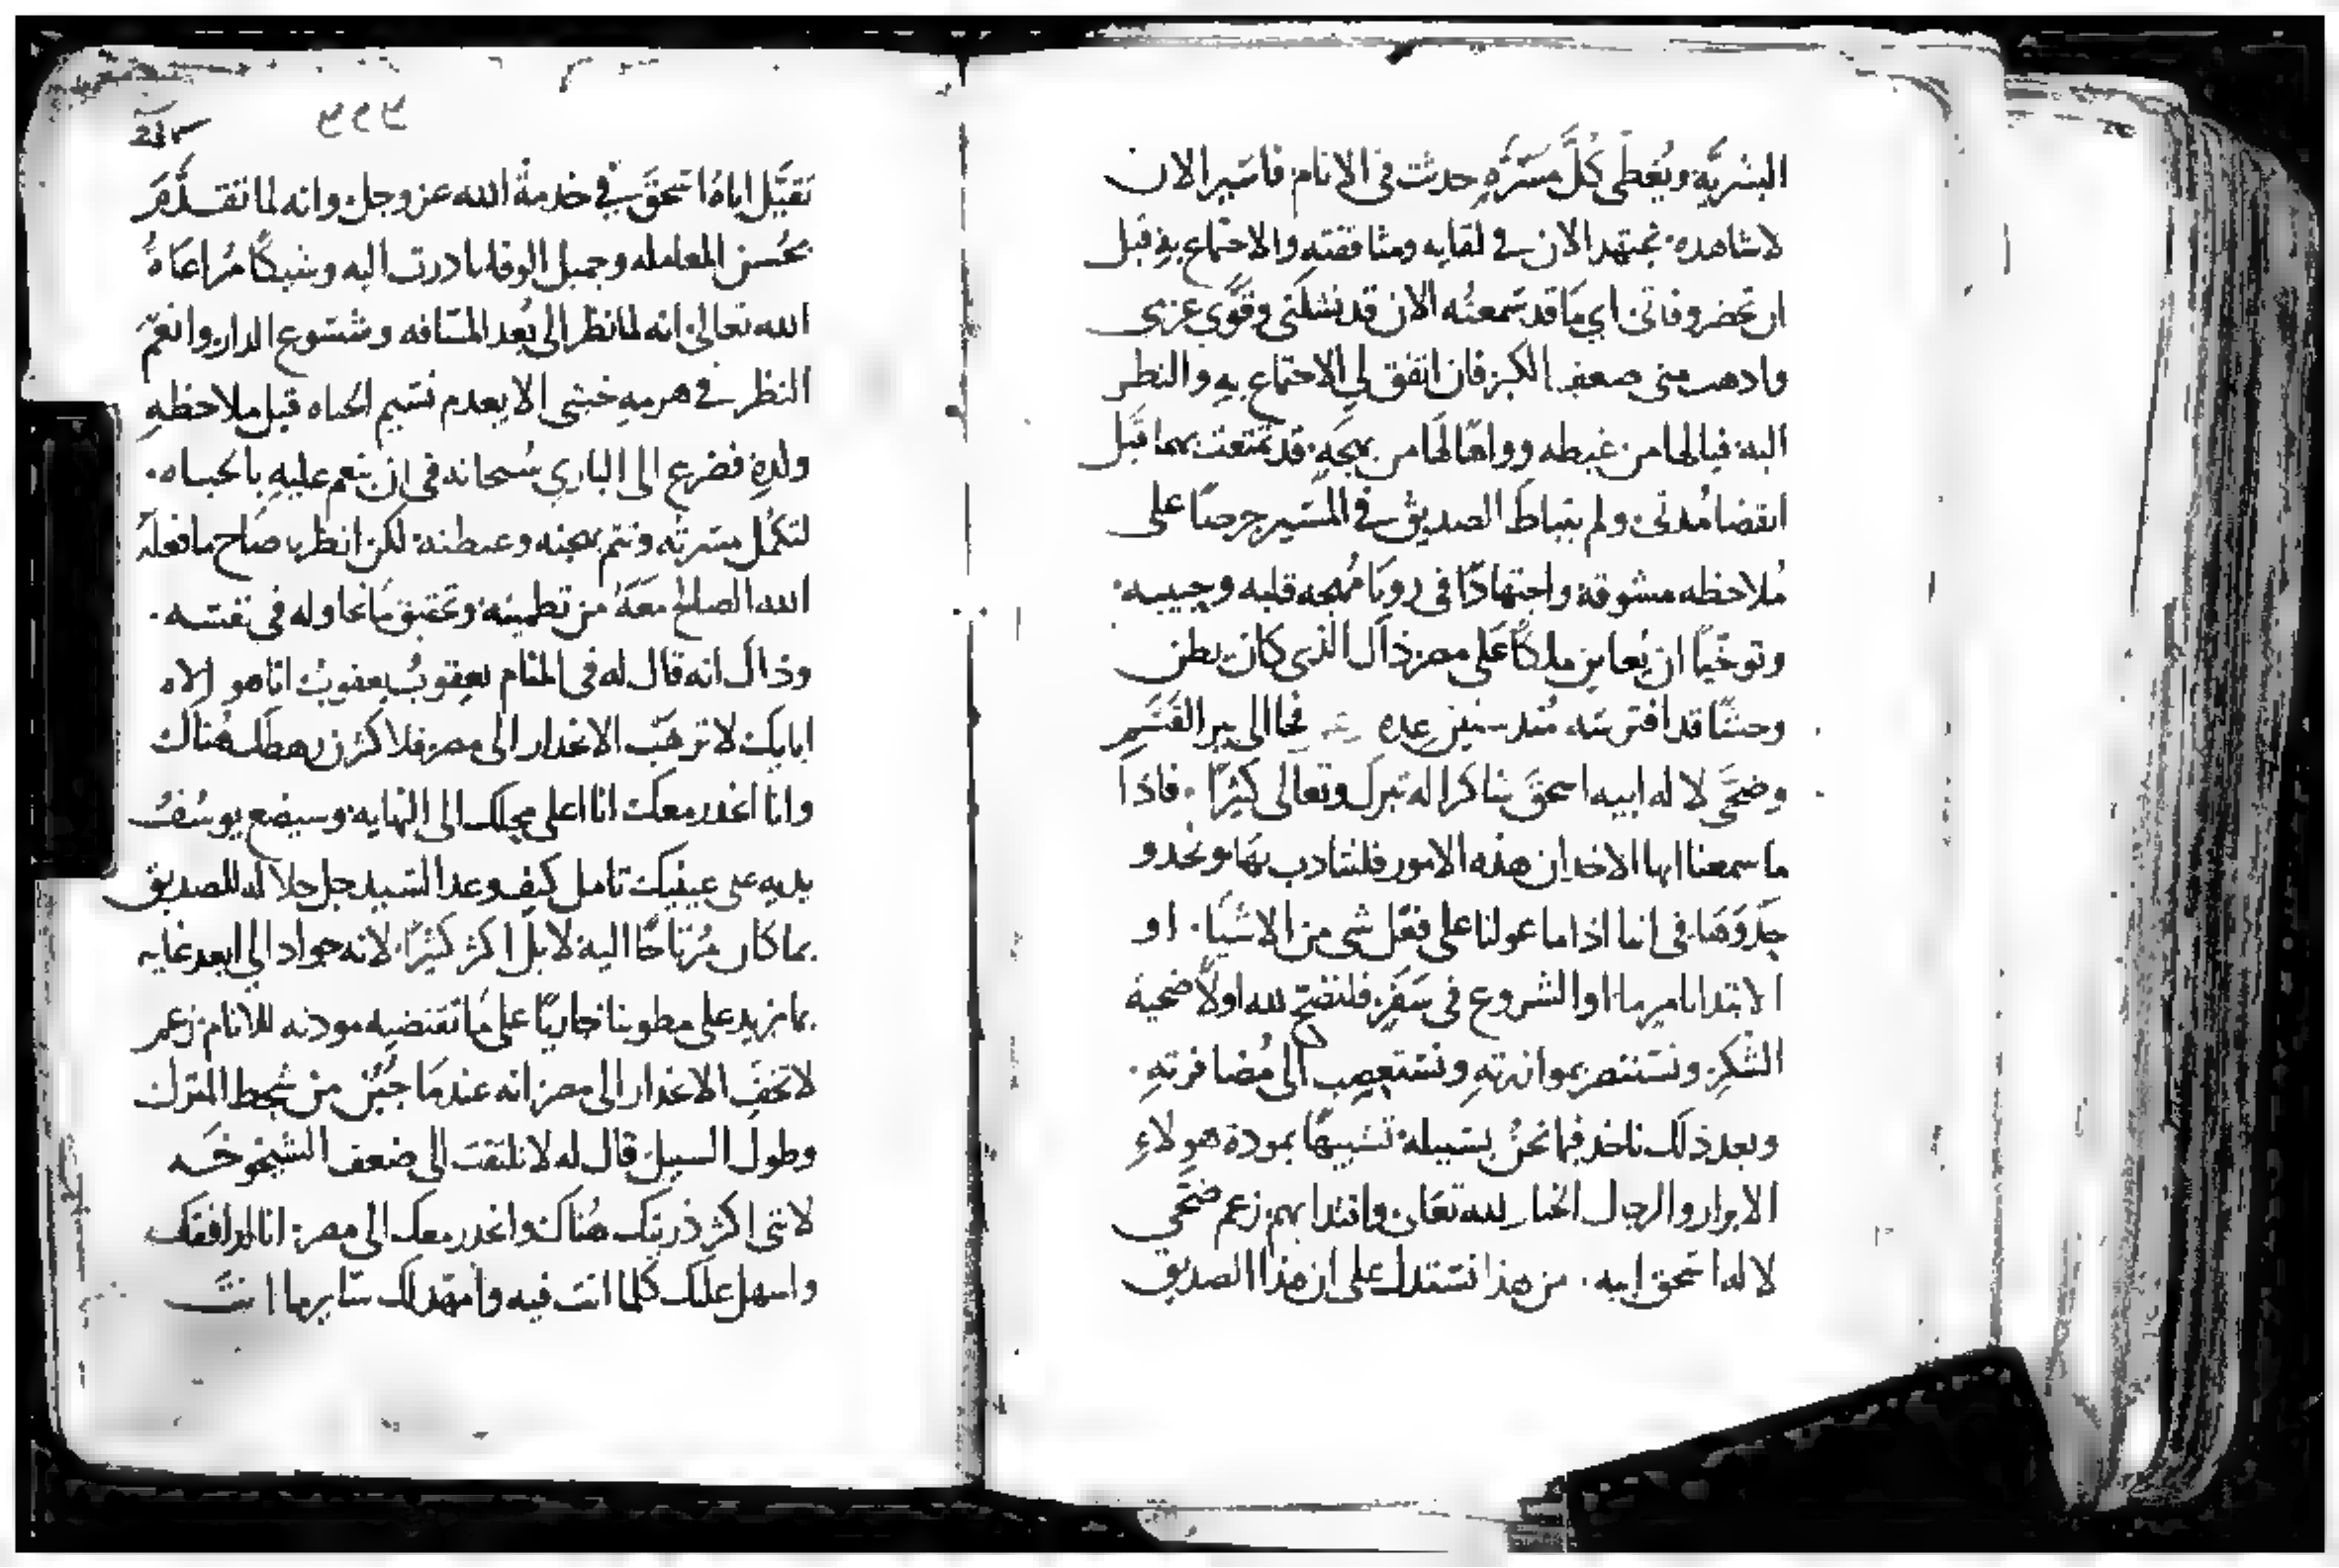 البشريَّة ويُغطى كُلَّ مَسَرَّهٍ حدثت فى الانام فاسَير الان
لاشاهده نجتهد الان في لقايه ومثاقفتهِ والاجتماع بهِ قبل
ان تحضر وفاتى اي مَا قد سَمعتُه الان قد نشلنى وقوَّي عزمي
واذهب منى ضعف الكبر فان اتفق لي الاجتماع بهِ والنظر
اليه فيا لها من غبطه وواهًا لهَا من بهجَهٍ قد تمتعت بهما قبل
انقضا مُدتى ولم يتباطَ الصديق في المسَير حرصًا على
مُلاحظه مشوقه واجتهادًا فى رويَا مُهجه قلبه وحبيبه
وتوخيًا ان يُعاين ملكًا على مصر ذاك الذى كان يظن
وحشًا قد افترسَه مُنذ سنين عده فجا الى بير القَسَمِ
وضحَّى لاله ابيه اسحقَ شاكرا له تبرك وتعالى كثيرًا فاذا
ما سمعنا ايها الاخدان هذه الامور فلنتادب بهَا ونحذو
حَذوَهَا فى اننا اذا ما عولنا على فعَل شى من الاشيَا او
الابتدا بامر ما او الشروع فى سَفَرٍ فلنفتتح لله اولًا ضحية
الشكر ونستنصر بموازرتهِ ونستعصب الى مُضافرتهِ
وبعد ذلك ناخذ فيما نحنُ بسَبيله تشبيهًا بمودة هولاءِ
الابرار والرجال الخيار لله تعَالى واقتدا بهم زعم ضحَّي
لاله اسَحق ابيه من هذا نستدل على ان هذا الصديق
تقيَّل اباهُ اسَحقَ في خدمة الله عز وجل وانه لما تقدَّمَ
بحُسن المعامله وجميل الوفا بادرت اليه وشيكًا مُراعَاةُ
الله تعالى انه لما نظر الى بُعد المسَافه وشسوع الدار وانعَم
النظر في هرمهِ خشى الا يعدم نسيم الحياه قبل ملاحظهِ
ولدهِ فضرع الى الباري سُبحانه فى ان ينعم عليهِ بالحياه
لتكمُل مسَرته وتتم بهجته وغبطته لكن انظر يا صَاح ما فعلهُ
الله الصالح معَهُ من تطمينه وتحقيق مَا نحا وله فى نفسَه
وذاك انه قال له فى المنام يعقوبُ يعقوبُ انا هو الاه
ابايك لا ترهَب الانحدار الى مصر فلاكثرن رهطك هُناك
وانا انحدر معك انا اعلى محلك الى النهايه وسيضع يوسُفُ
يديه على عينيك تامل كيف وعد السَيد جل جلاله للصديق
بما كان مُرتاحًا اليه لا بل اكثر كثيرًا لانه جواد الي ابعد غايه
بما يزيد على مطلوبنا جاريًا على مَا تقتضيه مودته للانام زعم
لا تخفَ الانحدار الى مصر انه عندمَا جَبُن من شحط المنزل
وطول السبيل قال له لا تلتفت الى ضعف الشيخوخَه
لانى اكثر ذريتك هُناك وانحدر معك الي مصر انا ارافقك
واسهل عليك كلما انت فيه وامهّد لك سَاير ما انتَ